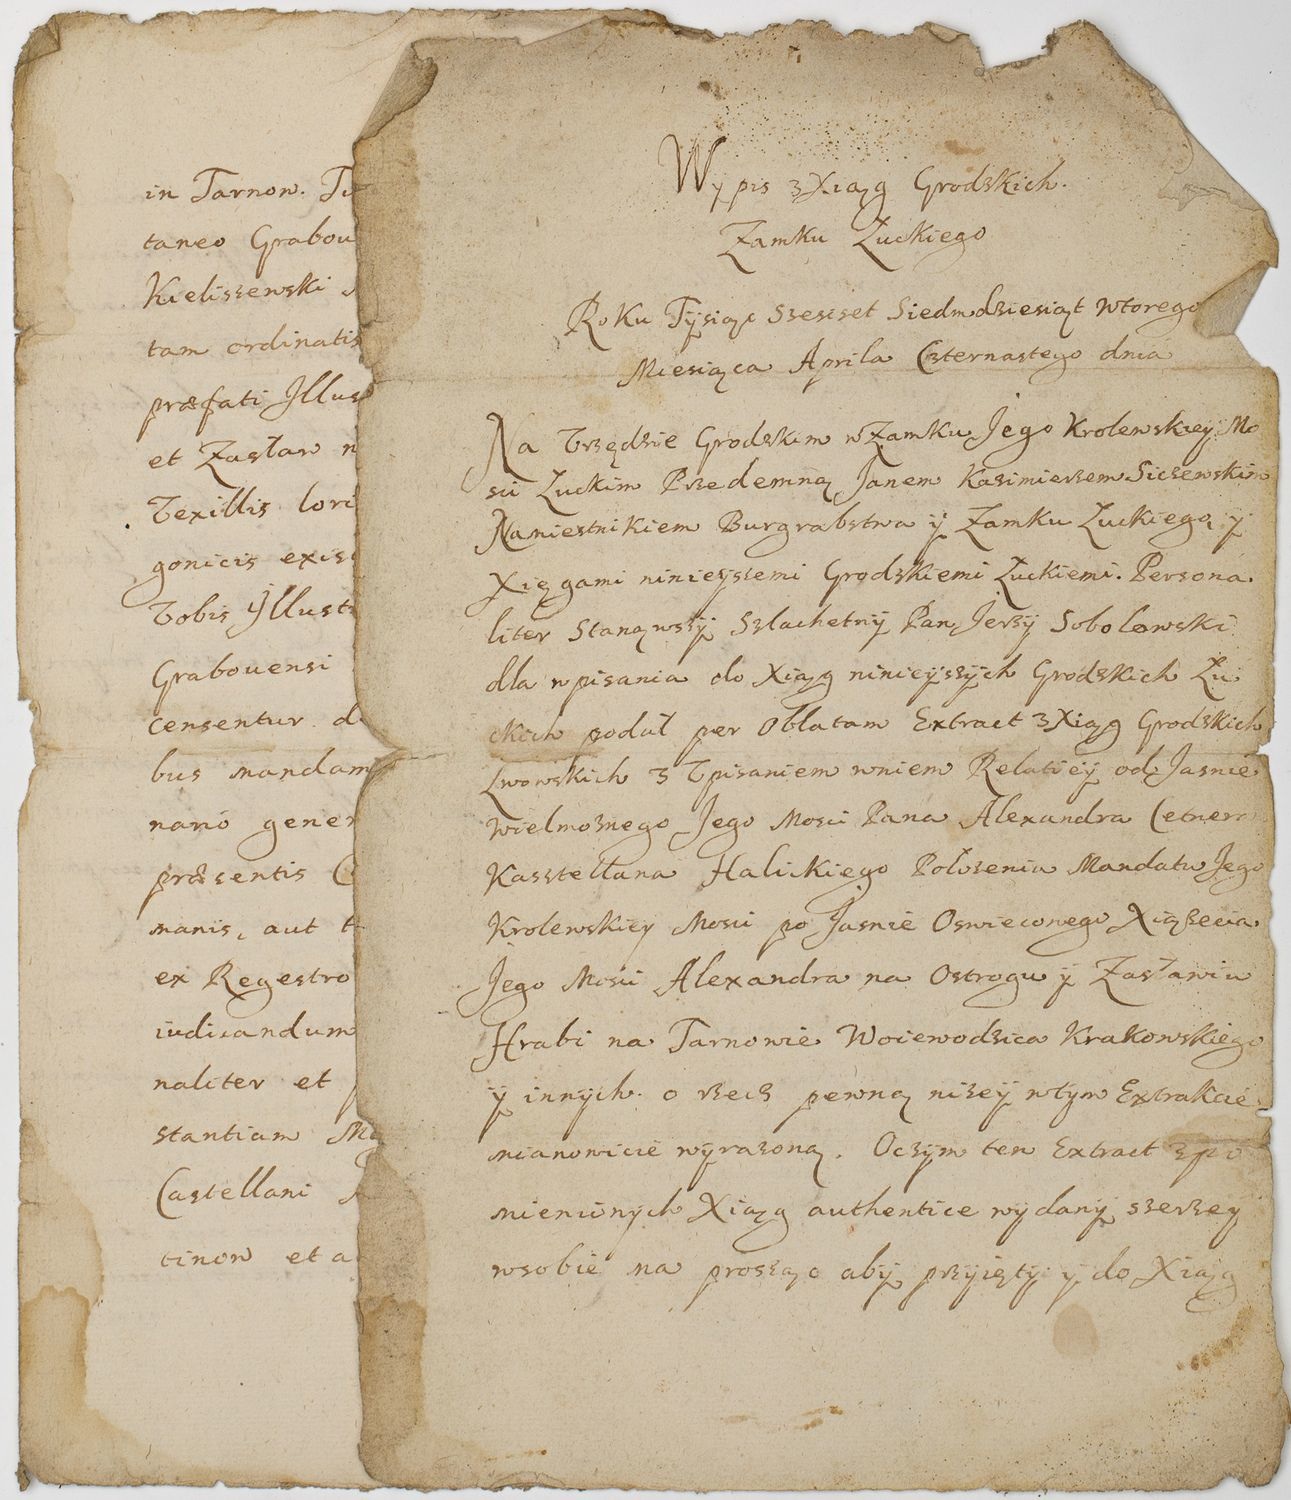 in Tarnow. 
taneo Grabou
Kieliszewski
tam ordinatis
præfati Illus
et Zasław n
Vexillis lori
gonicis exis
Vobis Illustr
Grabouensi
censentur. d
bus mandam
nario gener
præsentis C
manis, aut t
ex Regestro
iudicandum
naliter et
stantiam Ma
Castellani
tinow et a
Wypis z Xiąg Grodzkich.
Zamku Łuckiego
Roku Tysiąc Szescset Siedmdziesiąt wtorego
Miesiąca Aprila Czternastego dnia
Na Vrzędzie Grodzkim w Zamku Jego Krolewskiey Mo
sci Łuckim Przedemną Janem Kazimierzem Siczewskim
Namiestnikiem Burgrabstwa ÿ Zamku Łuckiego, ÿ
Xięgami ninieÿszemi Grodzkiemi Łuckiemi. Persona
liter Stanąwszÿ Szlachetnÿ Pan Jerzÿ Sobolewski
dla wpisania do Xiąg ninieÿszÿch Grodzkich Łu
ckich podał per Oblatam Extract z Xiąg Grodzkich
Lwowskich z Vpisaniem wniem Relatieÿ od Jasnie
wielmoznego Jego Mosci Pana Alexandra Cetnera
Kasztellana Halickiego Połozenia Mandatu Jego
Krolewskiey Mosci po Jasnie Oswieconego Xiązecia
Jego Mosci Alexandra na Ostrogu ÿ Zasławiu
Hrabi na Tarnowie Woiewodzica Krakowskiego
ÿ innÿch. o rzecz pewną nizeÿ wtÿm Extrakcie
mianowicie wÿrazoną. Oczÿm ten Extract zpo
mienionÿch Xiąg authentice wÿdanÿ szerzeÿ
wsobie ma prosząc abÿ przÿiętÿ ÿ do Xiąg